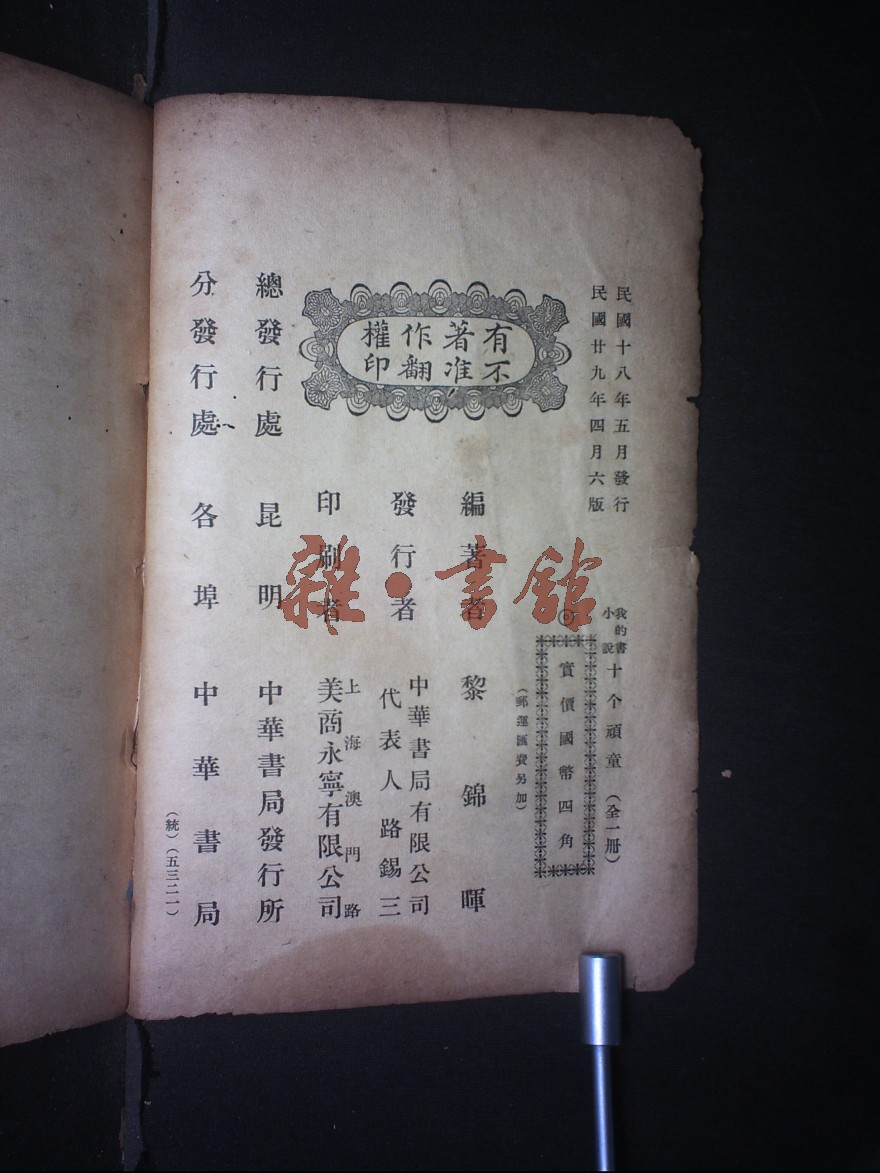 民國十八年五月發行
民國廿九年四月六版
我的書
小說
十个頑童（全一冊）
實價國幣四角
（郵運匯費另加）
有著作權
不准翻印
編著者 黎錦暉
發行者 中華書局有限公司
代表人路錫三
印刷者 上海澳門路
美商永寧有限公司
總發行處 昆明 中華書局發行所
分發行處 各埠 中華書局
（統）（五三二一）
雜·書館